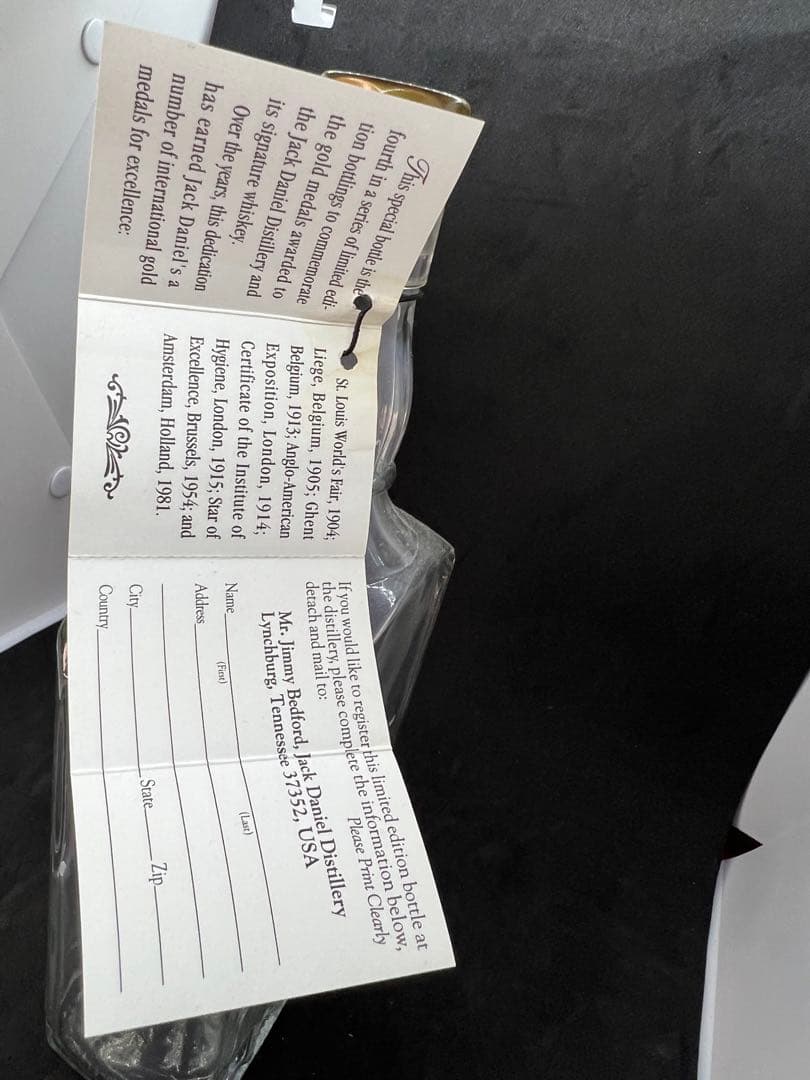 This special bottle is the
fourth in a series of limited edi-
tion bottlings to commemorate
the gold medals awarded to
the Jack Daniel Distillery and
its signature whiskey.
Over the years, this dedication
has earned Jack Daniel's a
number of international gold
medals for excellence:
St. Louis World's Fair, 1904;
Liege, Belgium, 1905; Ghent
Belgium, 1913; Anglo-American
Exposition, London, 1914;
Certificate of the Institute of
Hygiene, London, 1915; Star of
Excellence, Brussels, 1954; and
Amsterdam, Holland, 1981.
If you would like to register this limited edition bottle at
the distillery, please complete the information below,
detach and mail to: Please Print Clearly
Mr. Jimmy Bedford, Jack Daniel Distillery
Lynchburg, Tennessee 37352, USA
Name
(First) (Last)
Address
City State Zip
Country